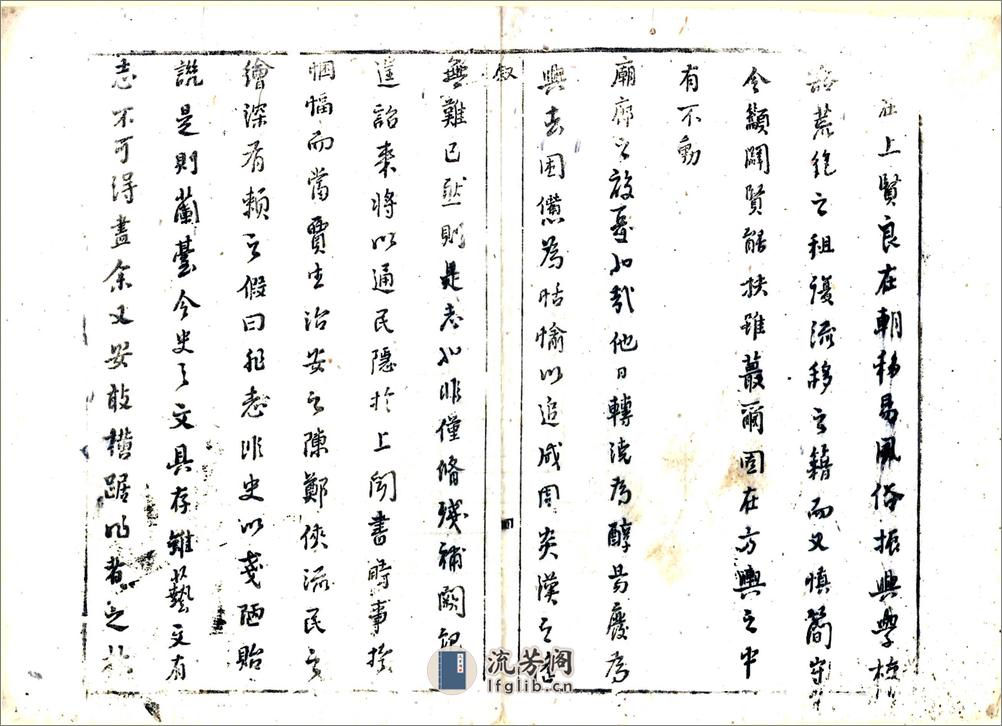 上賢良在朝移易風俗振興學校
荒絕之租復流移之籍而又慎簡守
令籲闢賢能扶雖蕞爾固在方輿之中
有不動
廟廊之放哉他日轉澆為醇易廢為
興去困憊為恬愉以追成周炎漢之
敘
四
無難已然則是志也非僅脩殘補闕
遑詔來將以通民隱於上聞書時事於
悃愊而當賈生治安之陳鄭俠流民之
繪深有賴之假曰非志非史以戔陋貽
說是則蘭臺令史之文具存雖藝文有
志不可得盡余又安敢撍踞昨者之
流芳阁
lfglib.cn